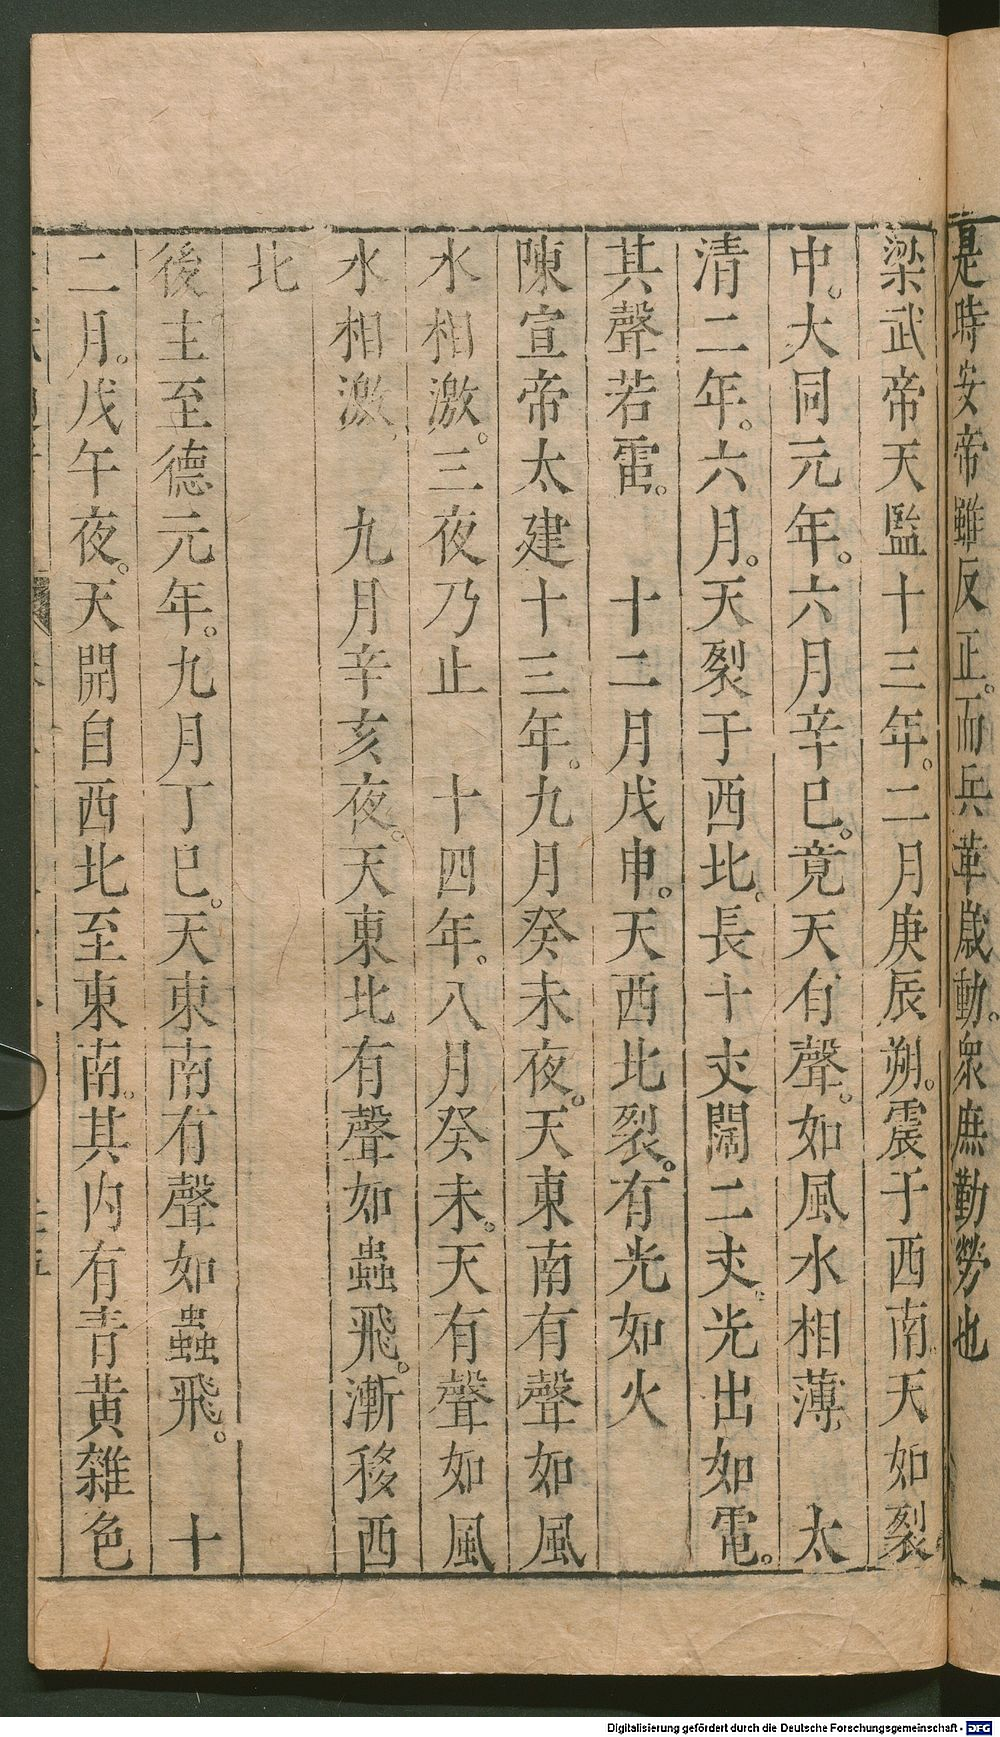 是時安帝雖反正。而兵革歲動。衆庶勤勞也
梁武帝天監十三年。二月庚辰朔。震于西南天如裂
中。大同元年。六月辛巳。竟天有聲。如風水相薄　太
清二年。六月。天裂于西北。長十丈闊二丈。光出如電。
其聲若雷。　十二月戊申。天西北裂。有光如火
陳宣帝太建十三年。九月癸未夜。天東南有聲如風
水相激。三夜乃止　十四年。八月癸未。天有聲如風
水相激　九月辛亥夜。天東北有聲如蟲飛。漸移西
北
後主至德元年。九月丁巳。天東南有聲如蟲飛。　十
二月。戊午夜。天開自西北至東南。其內有青黃雜色
Digitalisierung gefördert durch die Deutsche Forschungsgemeinschaft - DFG